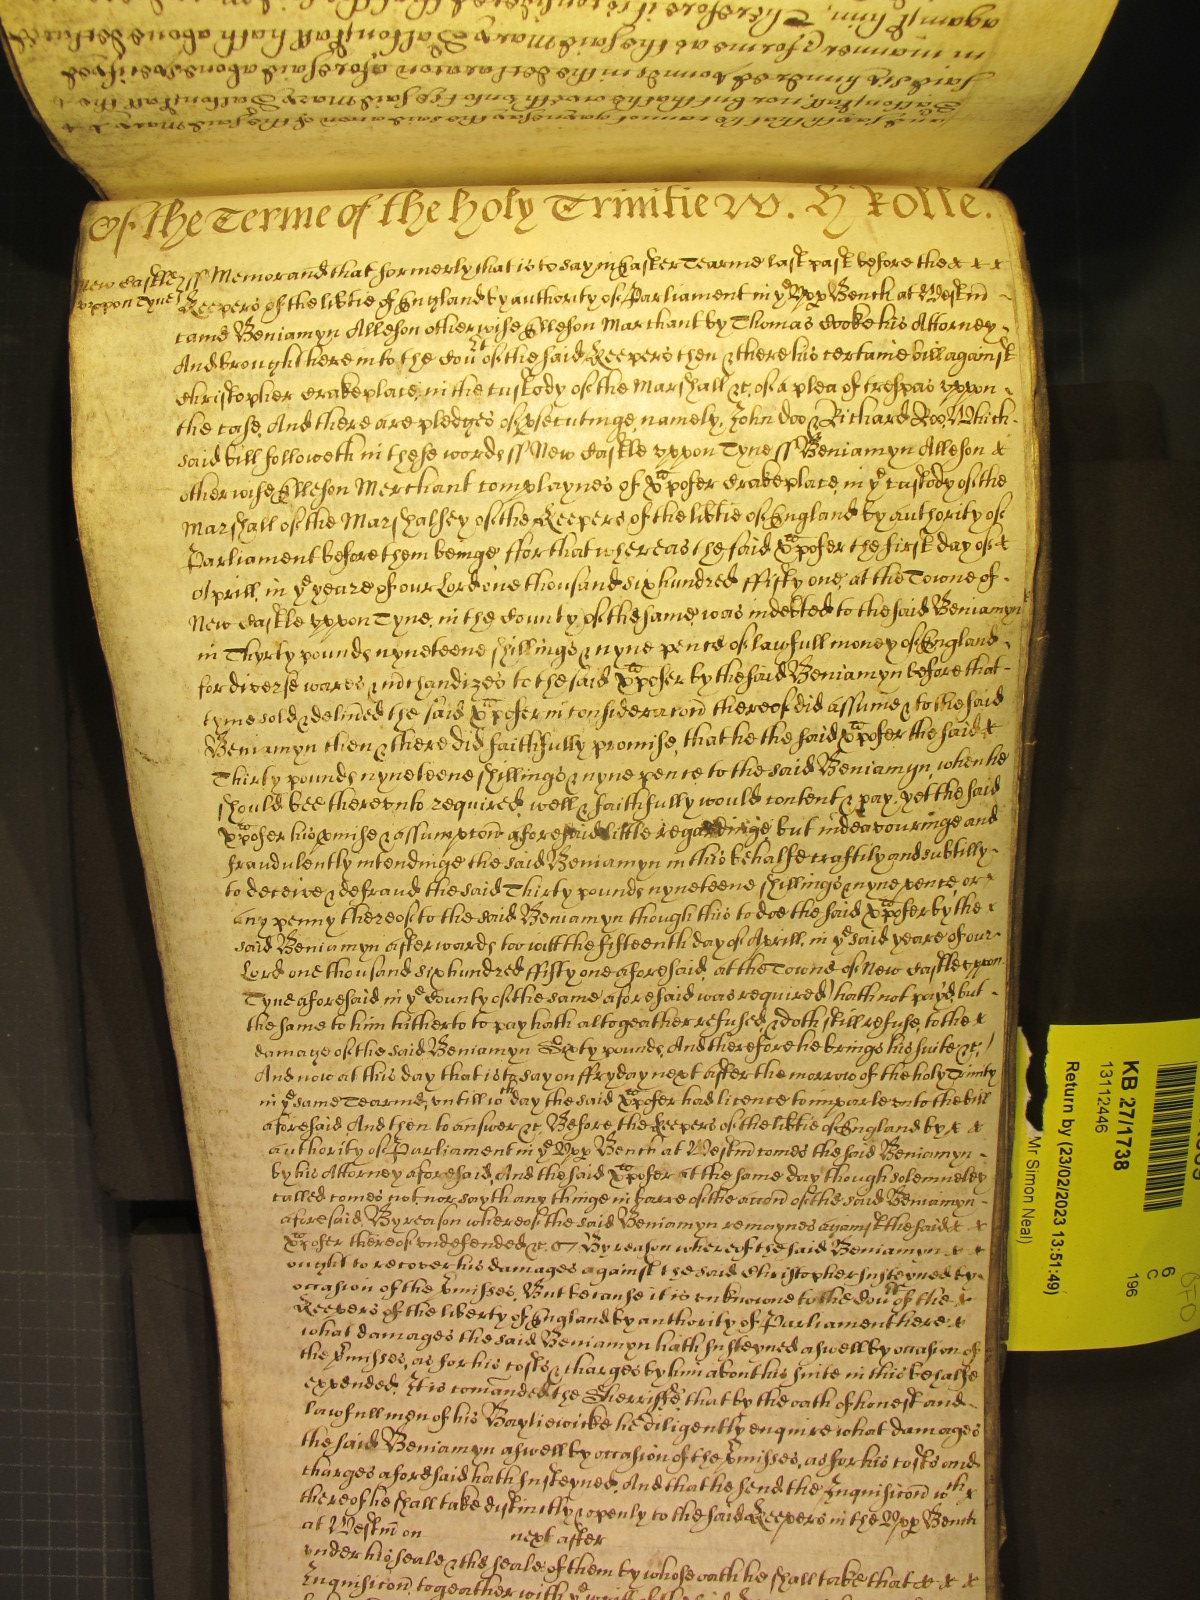 against him, Therefore it is considered that
in manner & forme as the said Mary Saltonstall hath above declared
said six hundred pounds in the declaration aforesaid above specified
Of the Terme of the Holy Trinitie W. H Rolle.
New Castle ss Memorand that formerly that is to say in Easter Tearme last past before the x x x
uppon Tyne Keepers of the lib'tie of England by authority of Parliament in ye Upp Bench at Westm
came Beniamyn Alleson otherwise Elleson Marchant by Thomas Cooke his Attorney
And brought here into the Cout of the said Keepers then & there his certaine bill against
Christopher Crakeplace, in the custody of the Marshall &c. of a plea of trespas uppon
the case. And there are pledges of psecutinge, namely, John Doo & Richard Roo Which
said bill followeth in these words ss New Castle uppon Tyne ss Beniamyn Alleson x
otherwise Elleson Merchant complaynes of Xpofer Crakeplace, in ye custody of the
Marshall of the Marshalsey of the Keepers of the lib'tie of England by authority of
Parliament before them beinge ffor that whereas the said Xpofer the first day of x
Aprill, in ye yeare of our Lord one thousand six hundred ffifty one, at the Towne of
New Castle uppon Tyne, in the County of the same, was indebted to the said Beniamyn
in Thirty pounds nyneteene shillings & nyne pence of lawfull money of England
for diverse wares & m'chandizes to the said Xpofer by the said Beniamyn before that
tyme sold & deliued the said Xpofer in consideracon thereof did assume & to the said
Beniamyn then & there did faithfully promise, that he the said Xpofer the said x
Thirty pounds nyneteene shillings & nyne pence to the said Beniamyn, when he
should bee thereunto required, well & faithfully would content & pay, yet the said
Xpofer his pmise & assumpcon aforesaid little regardinge, but indeavouringe and
fraudulently intendinge the said Beniamyn in this behalfe craftily and subtilly
to deceive & defraud the said Thirty pounds nyneteene shillings & nyne pence or x
any penny thereof to the said Beniamyn though this to doe the said Xpofer by the x
said Beniamyn afterwards to witt the fifteenth day of Aprill, in ye said yeare of our
Lord one thousand six hundred ffifty one aforesaid, at the Towne of New Castle uppon
Tyne aforesaid in ye County of the same aforesaid was required) hath not payd, but
the same to him hitherto to pay hath altogeather refused, & doth still refuse, to the x
damage of the said Beniamyn Sixty pounds, And therefore he brings his suite &c.
And now at this day that is to say on ffryday next after the morrow of the holy Trinity
in ye same Tearme, untill wch day the said Xpofer had licence to imparle unto the bill
aforesaid And then to answer &c. Before the Keepers of the lib'tie of England by x x
authority of Parliament in ye Upp Bench at Westm comes the said Beniamyn
by his Attorney aforesaid, And the said Xpofer at the same day though solemneley
called comes not, nor sayth any thinge in barre of the accon of the said Beniamyn
aforesaid, By reason whereof the said Beniamyn remaynes against the said x x
Xpofer thereof undefended &c. By reason whereof the said Beniamyn x x
ought to recover his damages against the said Christopher susteyned by
occasion of the pmisses, But because it is unknowne to the Cout of the x
Keepers of the liberty of England by authority of Parliament here x
what damages the said Beniamyn hath susteyned aswell by occasion of
the pmisses, as for his costs & charges by him about his suite in this behalfe
expended, It is comanded the Sherriffe, that by the oath of honest and
lawfull men of his Bayliewicke he diligently enquire what damages
the said Beniamyn aswell by occasion of the pmisses, as for his costs and
charges aforesaid hath susteyned, And that he send the Inquisicon wch x
thereof he shall take distinctly & openly to the said Keepers in the Upp Bench
at Westm on next after
under his seale & the seale of them by whose oath he shall take that x x x
Inquisicon, togeather with ye writt
KB 27/1738
13112446
Return by (23/02/2023 13:51:49)
Mr Simon Neal)
6
C
196